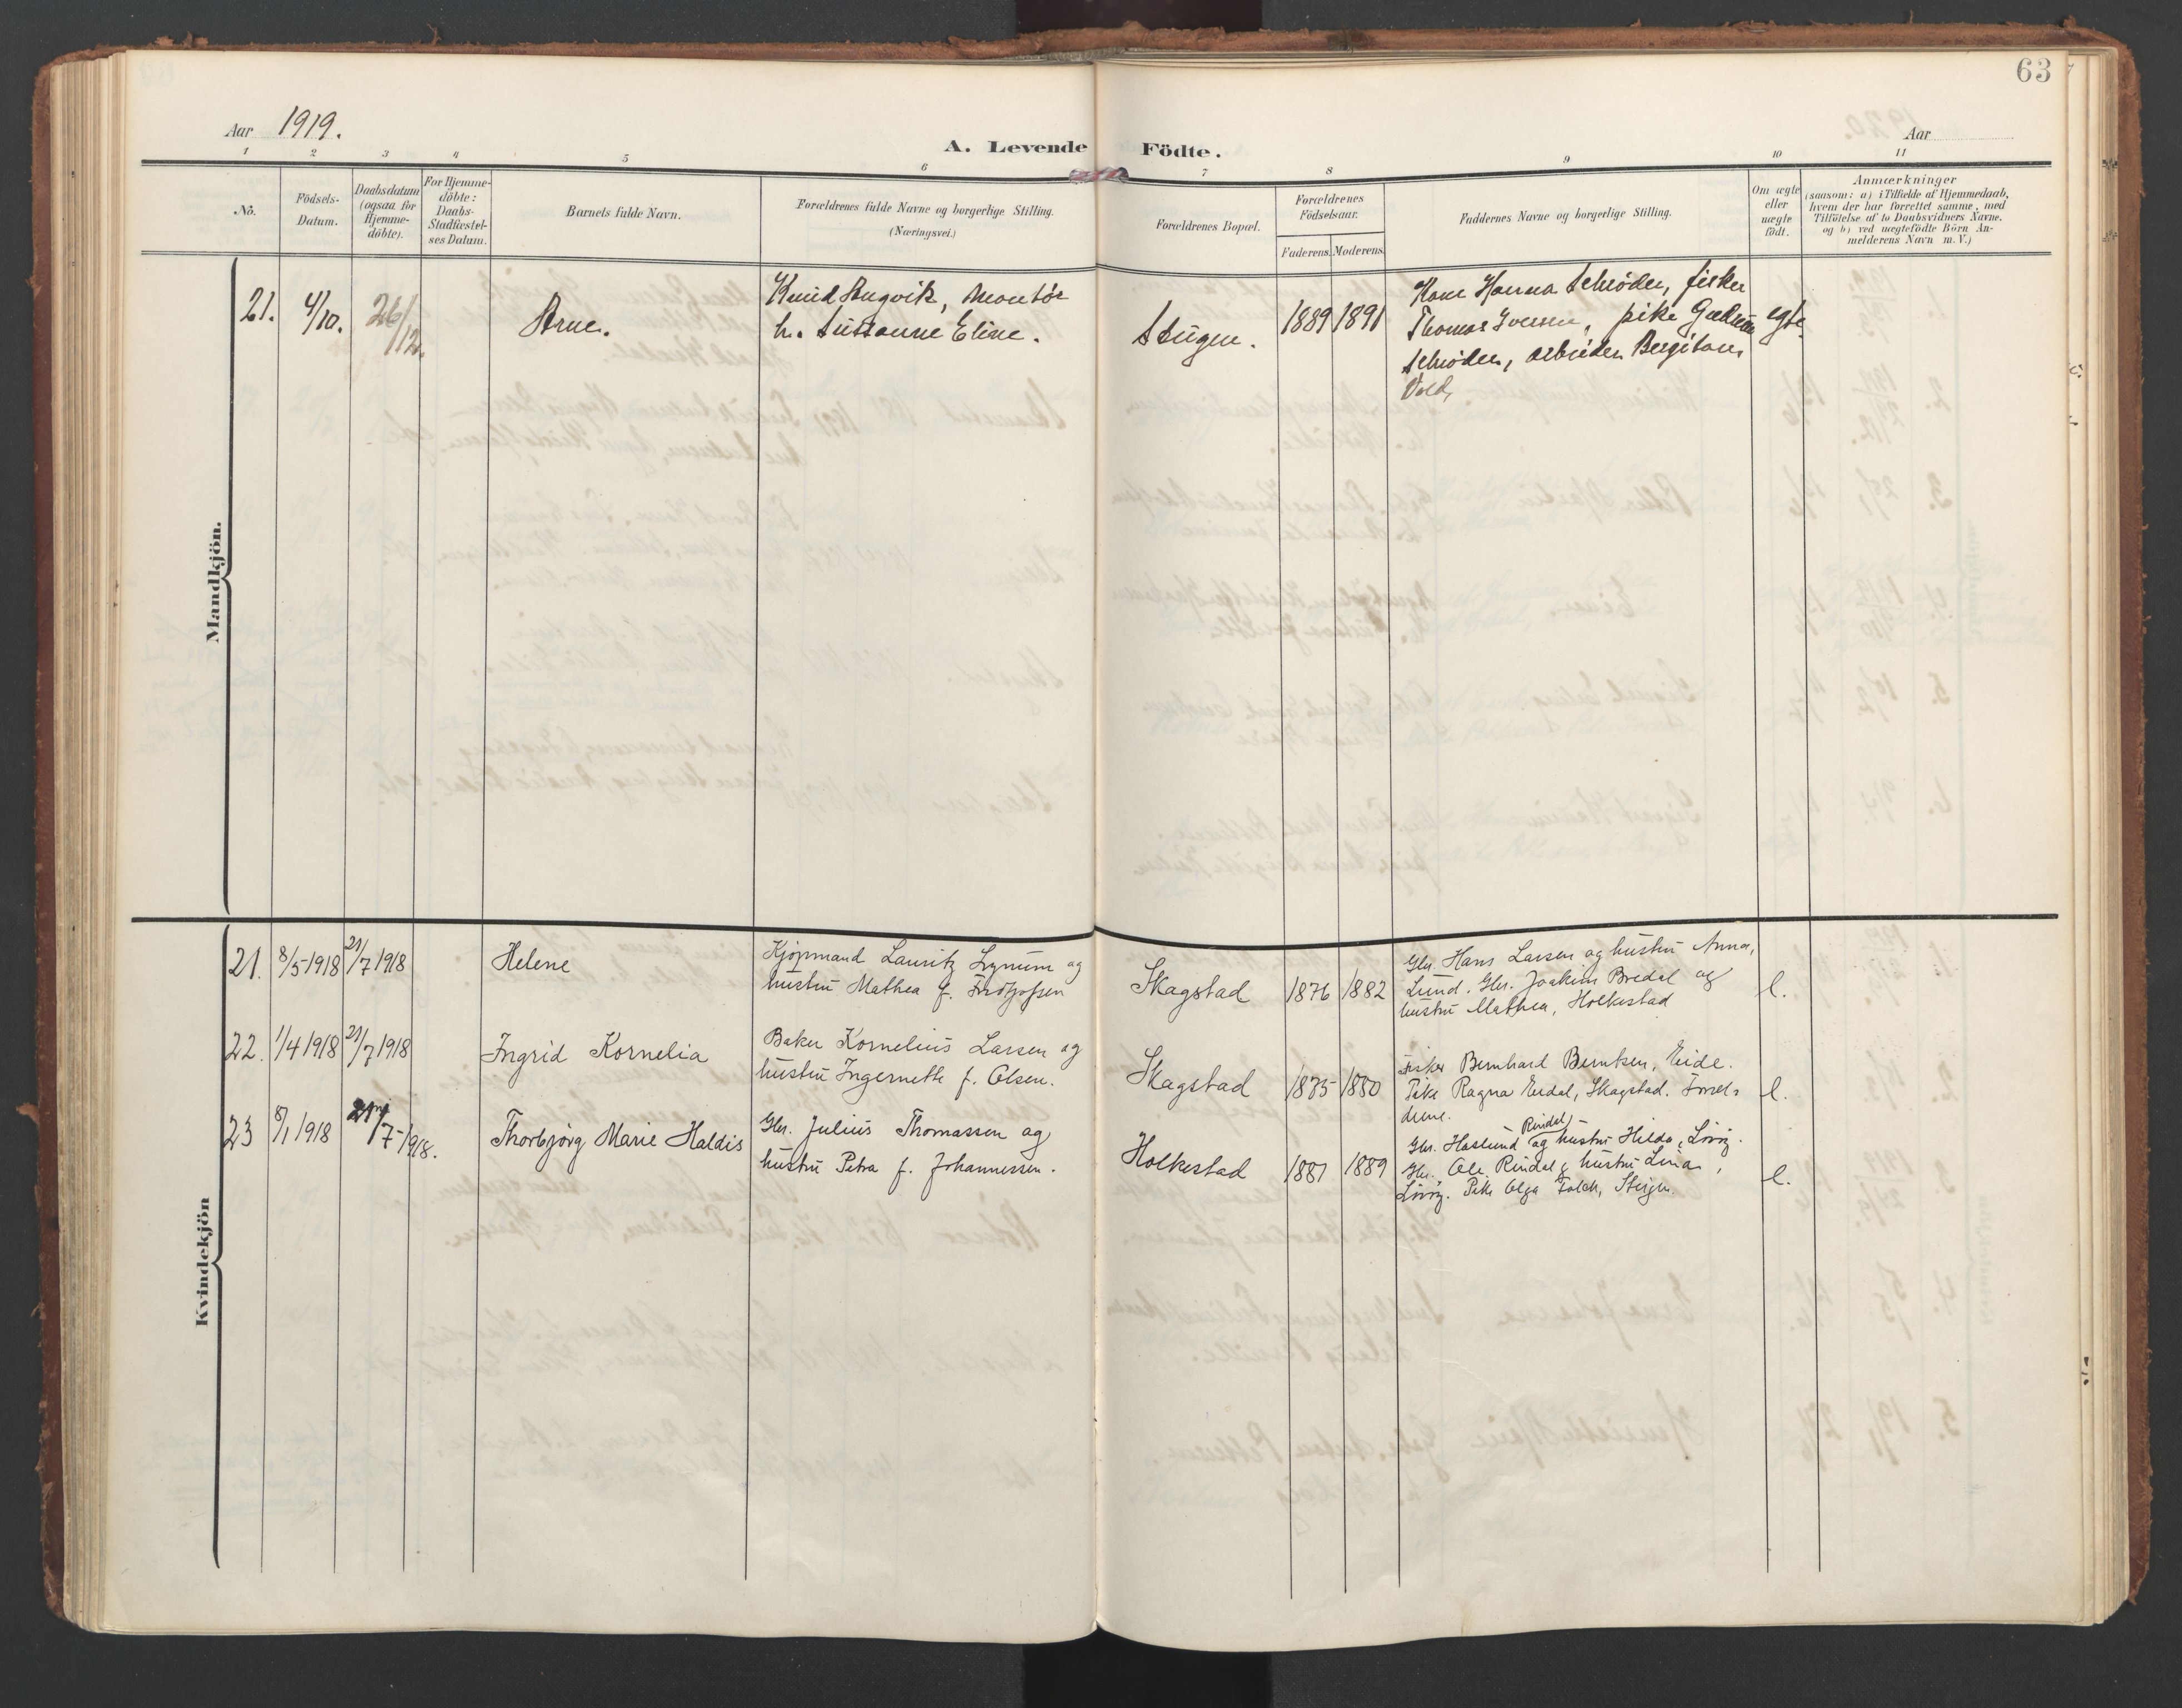 63
Aar 1919.
Aar
A. Levende Födte.
1 2 3 4 5 6 7 8 9 10 11
No.
Födsels-
Datum.
Daabsdatum
(ogsaa for
Hjemme-
döbte).
For Hjemme-
döbte:
Daabs-
Stadfæstel-
ses Datum.
Barnets fulde Navn.
Forældrenes fulde Navne og borgerlige Stilling.
(Næringsvei.)
Forældrenes Bopæl.
Forældrenes
Födselsaar.
Faderens. Moderens.
Faddernes Navne og borgerlige Stilling.
Om ægte
eller
uægte
födt.
Anmærkninger
(saasom: a) i Tilfælde af Hjemmedaab,
hvem der har forrettet samme, med
Tilföielse af to Daabsvidners Navne.
og b) ved uægtefödte Börn An-
melderens Navn m. V.)
Mandkjön.
21. 4/10. 26/12. Arne.
Knud Angvik, Montör
h. Sussanne Eline.
Steigen. 1889 1891
Kone Hanna Schröder, fisker
Thomas Iversen, pike Gudrun
Schröder, arbeider Bergiton
Vold,
egte
Kvindekjön
21. 8/5 1918 21/7 1918 Helene
Kjøpmand Lauritz Lynum og
hustru Mathea f. Fridtjofsen
Skagstad 1876 1882
Gbr. Hans Larsen og hustru Anna,
Lund. Gbr. Joakim Bredal og
hustru Mathea, Holkestad
e.
22. 1/4 1918 21/7 1918 Ingrid Kornelia
Baker Kornelius Larsen og
hustru Ingernette f. Olsen.
Skagstad 1875 1880
Fisker Bernhard Berntsen, Eide.
Pike Ragna Eidal, Skagstad. Foræl-
drene.
e.
23 8/1 1918 21/7 1918. Thorbjörg Marie Haldis
Gbr. Julius Thomassen og
hustru Petra f. Johannessen.
Holkestad 1881 1889
Rindal
Gbr. Haslund og hustru Hilda, Löviz.
Gbr. Ole Rindal & hustru Lina,
Löviz. Pike Olga Falch, Steigen.
e.